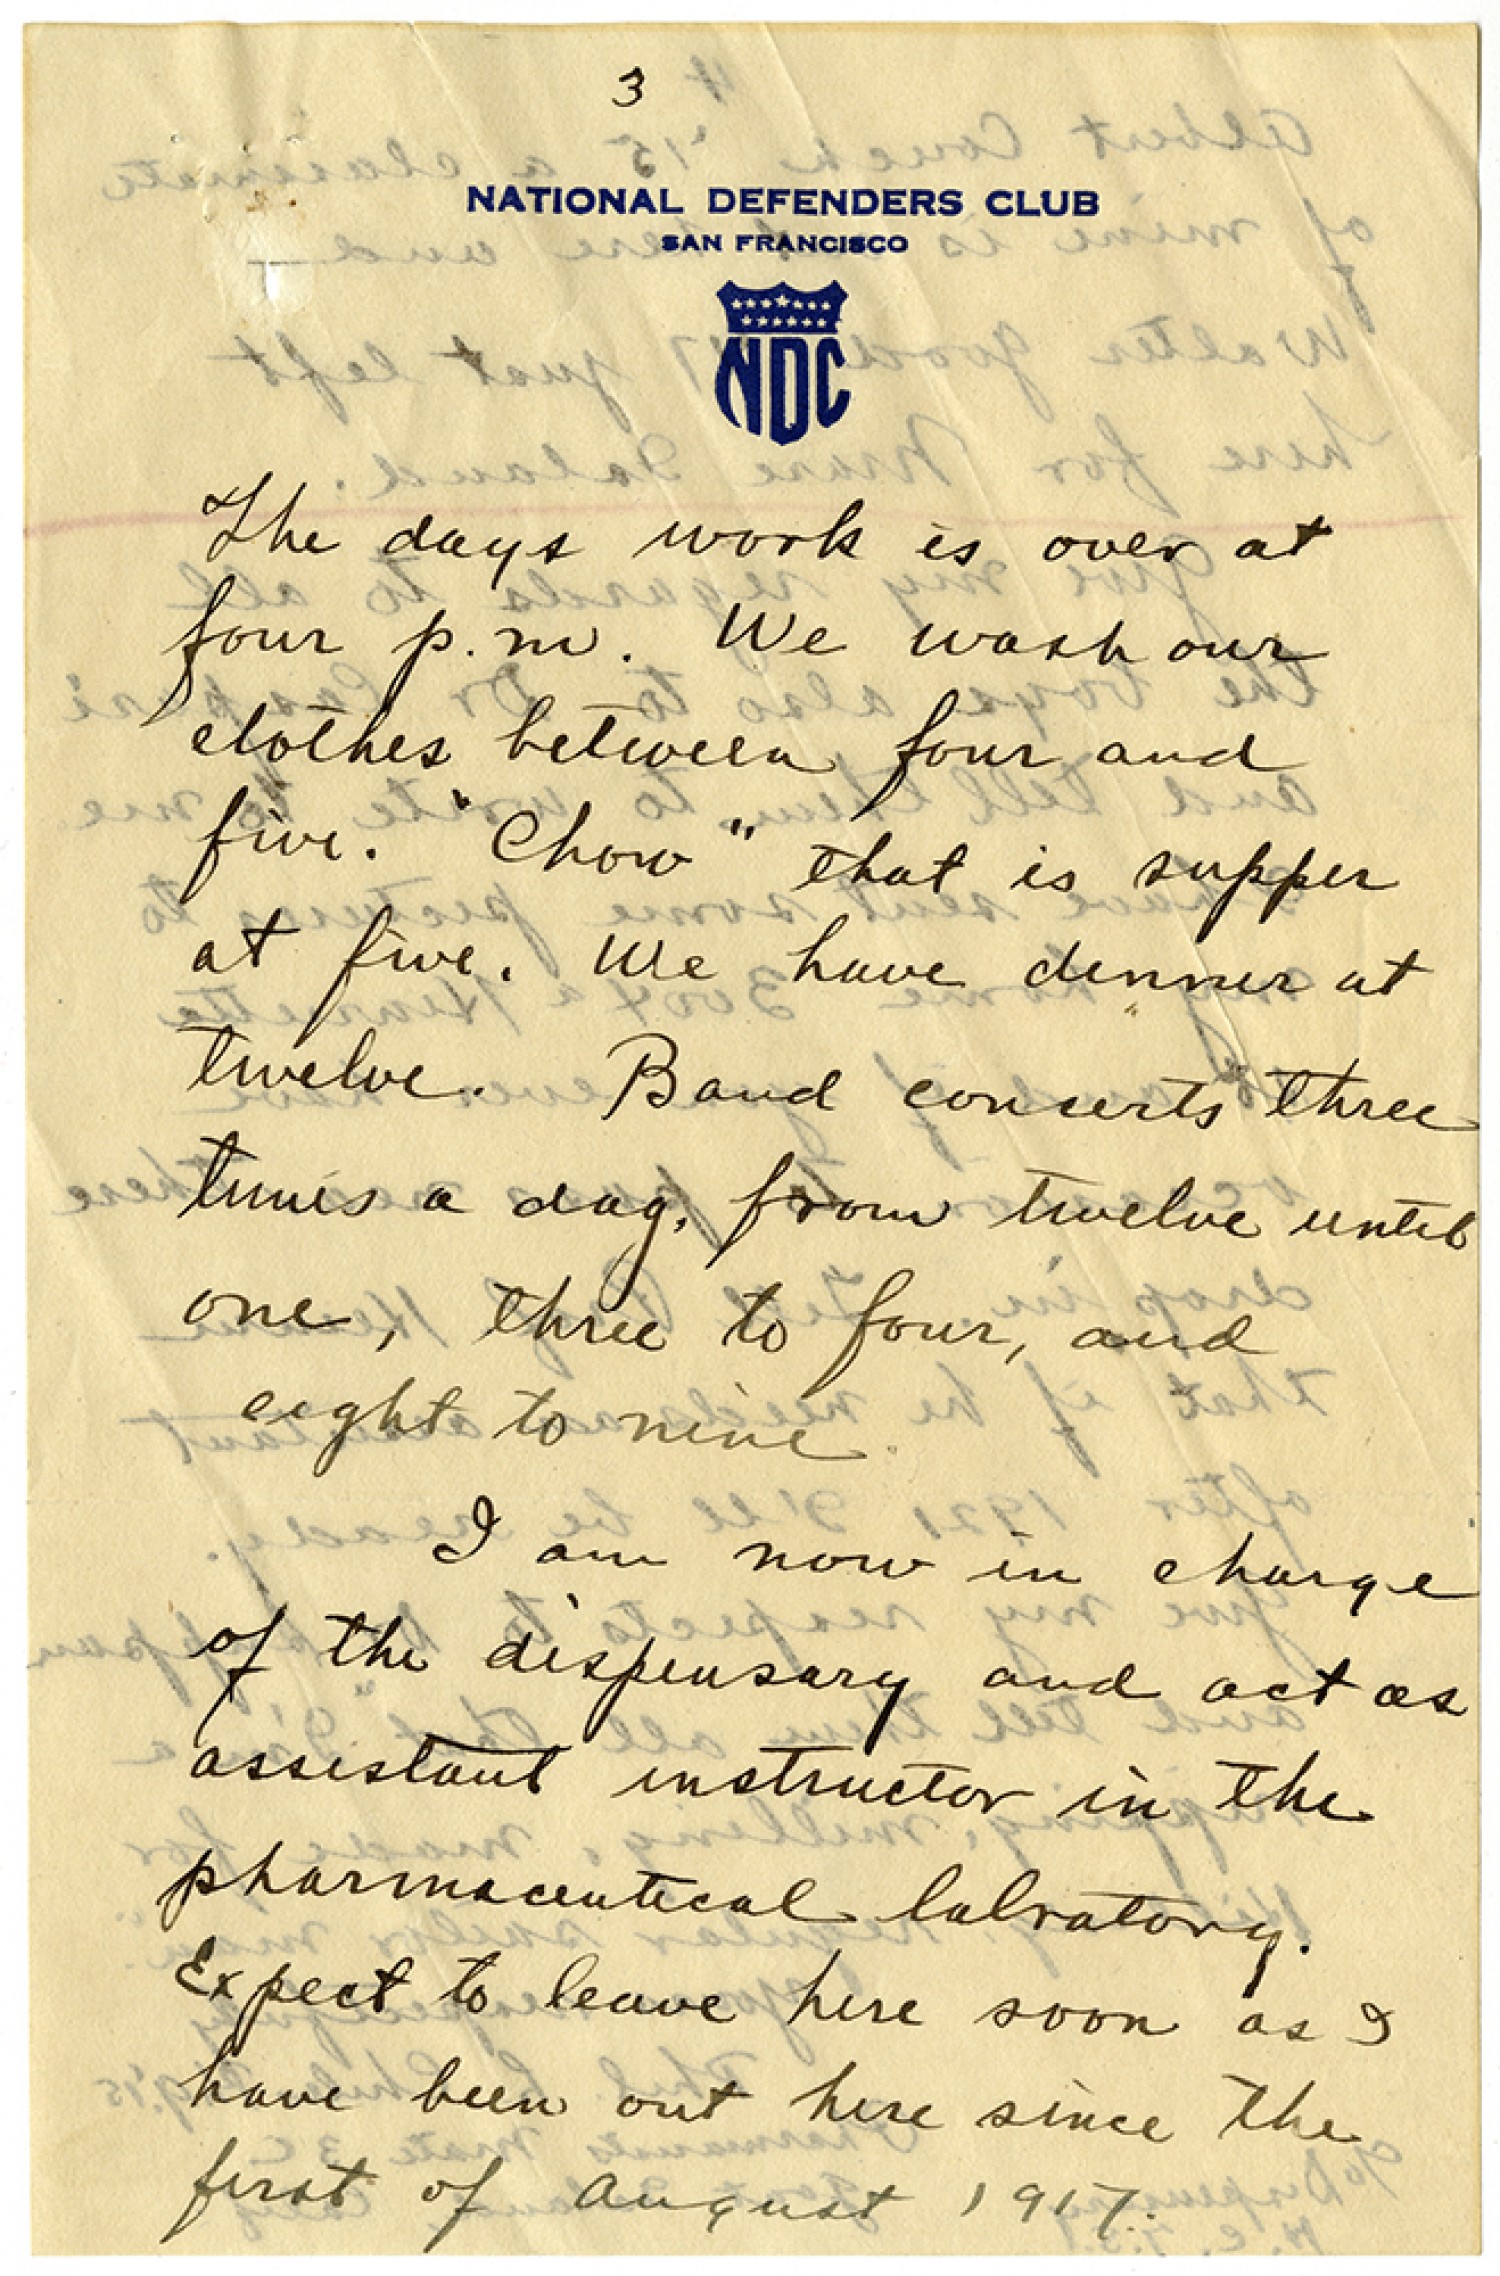 3
NATIONAL DEFENDERS CLUB
SAN FRANCISCO
NDC
The days work is over at
four p.m. We wash our
clothes between four and
five. "Chow" that is supper
at five. We have dinner at
twelve. Band conserts three
times a day, from twelve until
one, three to four, and
eight to nine.
I am now in charge
of the dispensary and act as
assistant instructor in the
pharmaceutical labratory.
Expect to leave here soon as I
have been out here since the
first of August 1917.